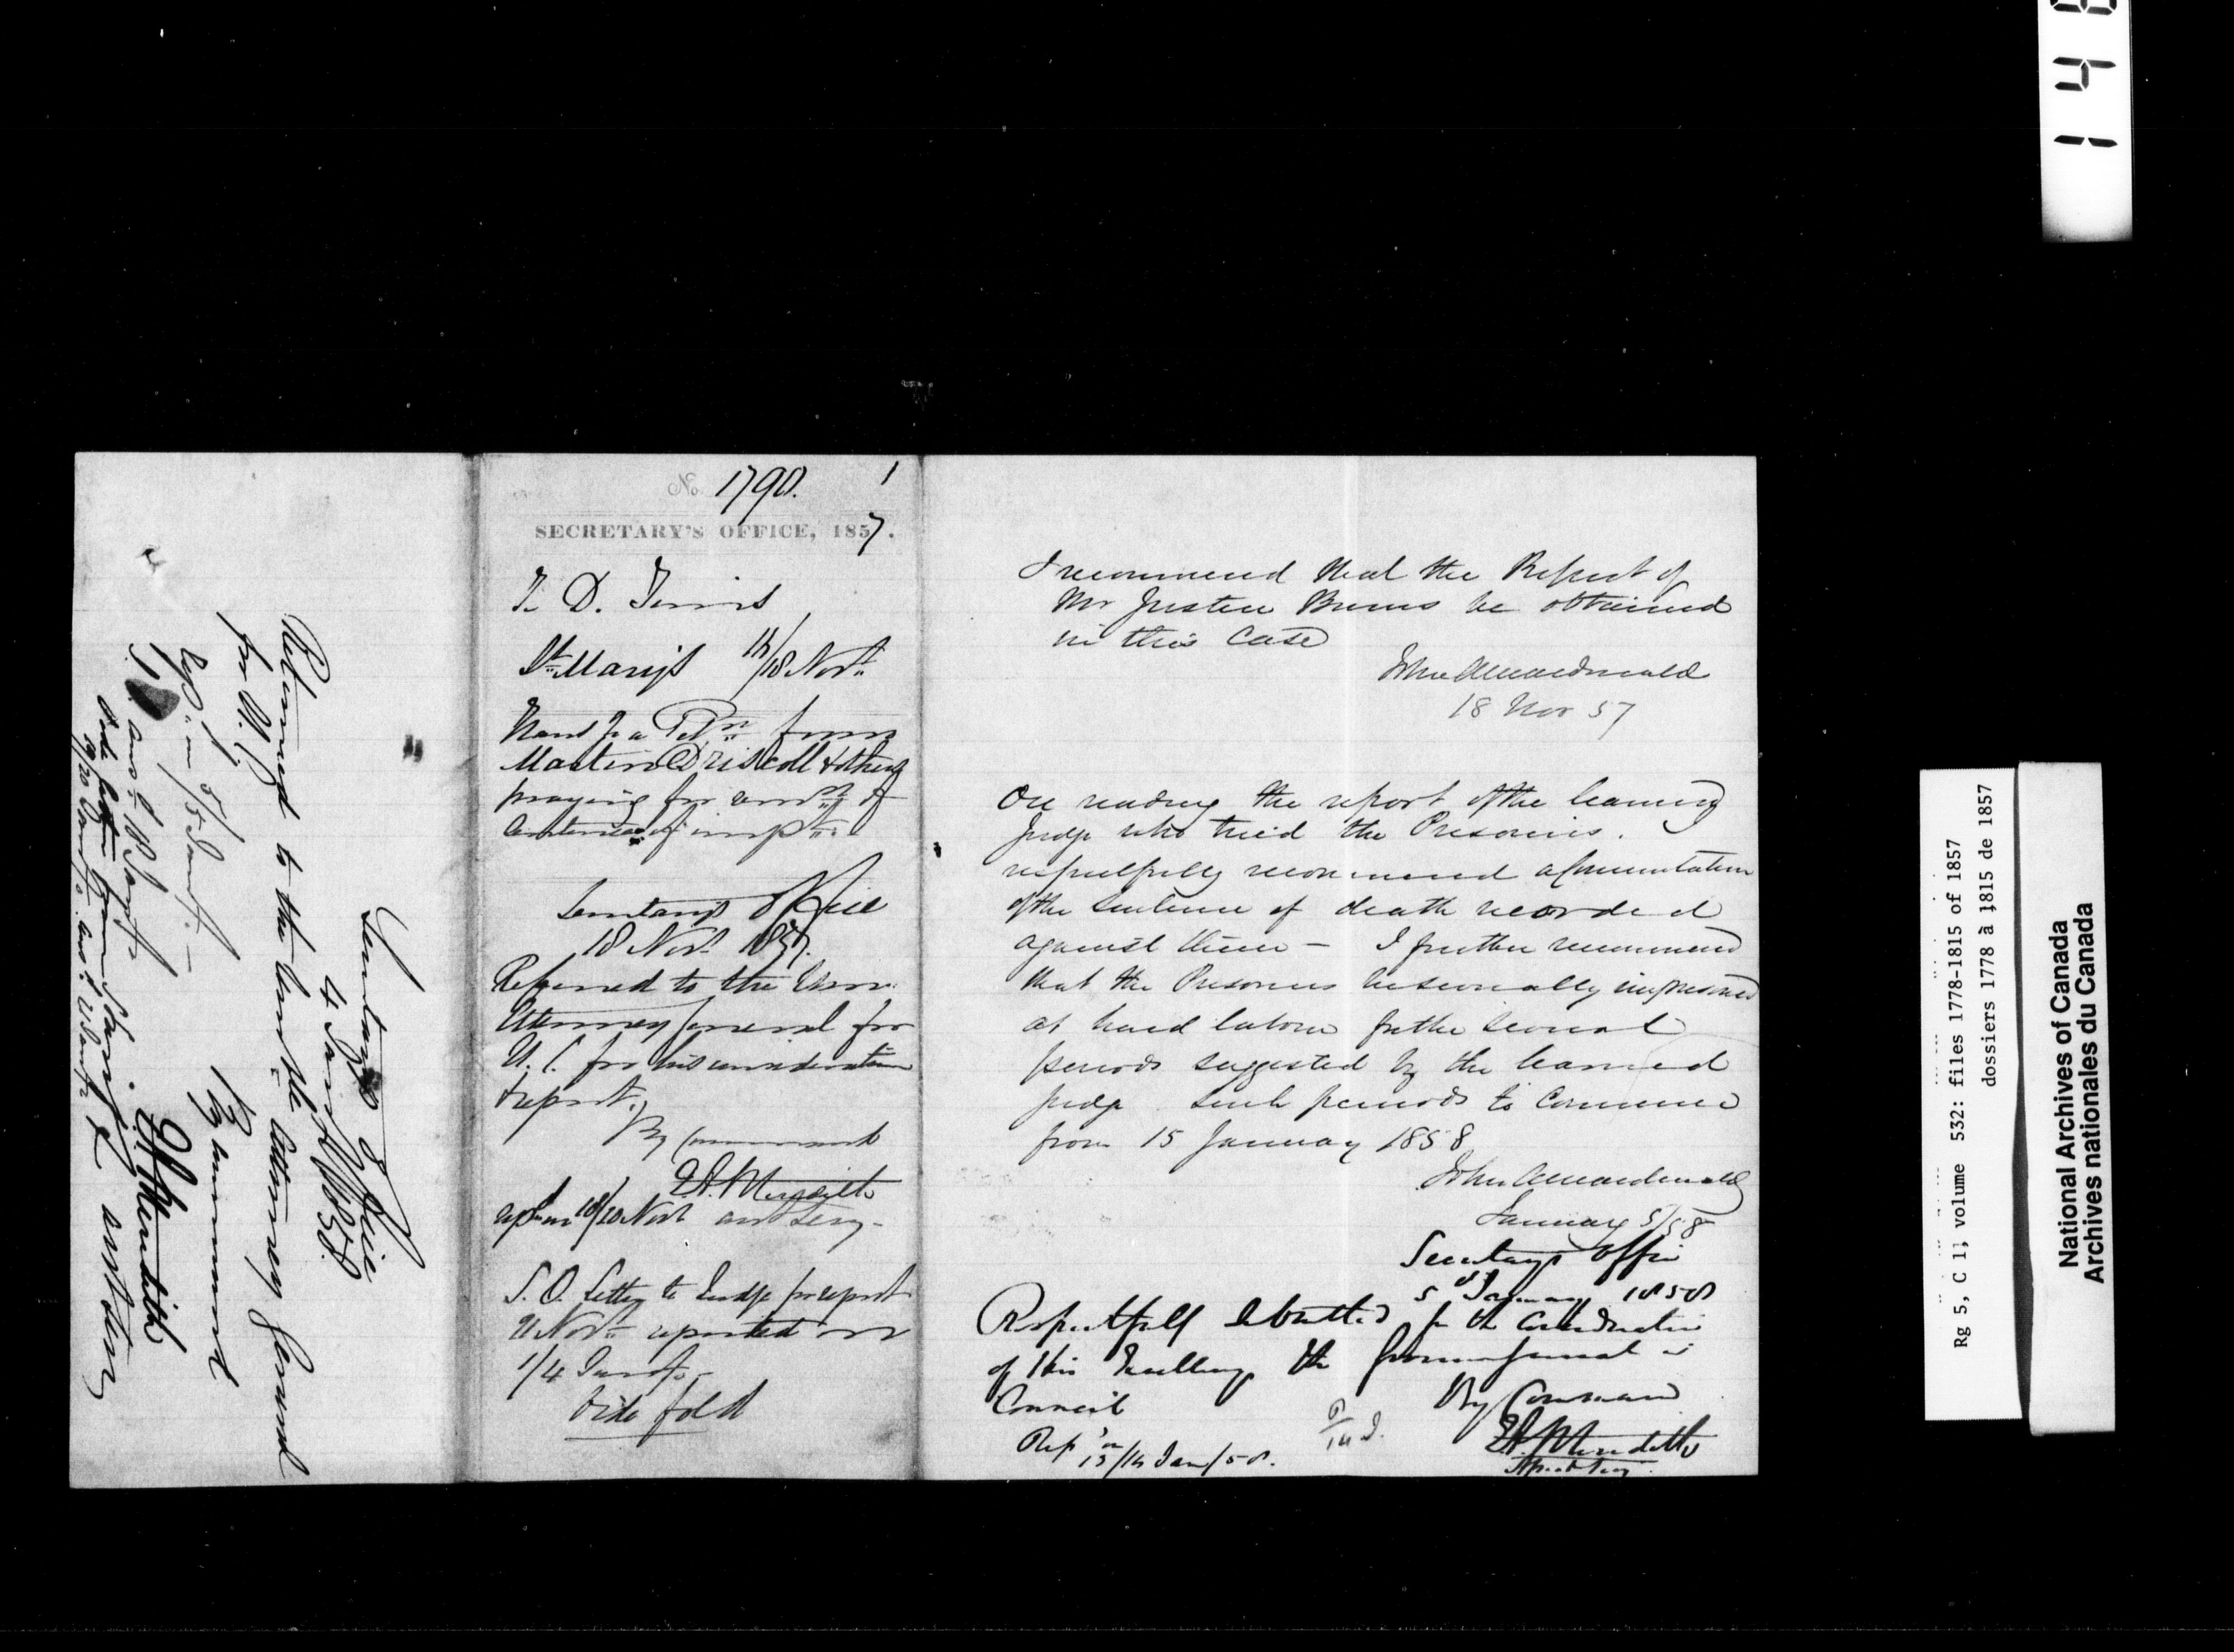 No. 1790. 1
SECRETARY'S OFFICE, 1857.
T. D.
St. Mary's 14/18 Novr.
Trans. for a Petn. from
Martin Driscoll & others
praying for remn. of
sentence of impt.
Secretary's Office
18 Novr. 1857.
Referred to the Hon.
Attorney General for
U. C. for his consideration
& report.
By Command
E. A. Meredith
rep. in 18/20 Novr.
S. O. Letter to Judge for report
Novr. reported on
1/4 Jany.
Vide fold
I recommend that the Report of
Mr Justice Burns be obtained
in this Case
John A Macdonald
18 Nov 57
On reading the report of the learned
Judge who tried the Prisoners.
respectfully recommend a Commutation
of the sentence of death recorded
against them – I further recommend
that the Prisoners be severally imprisoned
at hard labour for the several
periods suggested by the learned
Judge such periods to commence
from 15 January 1858
John A Macdonald
January 5/58
Secretary's Office
5 January 1858
Respectfully submitted for the Consideration
of His Excellency the
Council
By Command
E. A. Meredith
Rep. in 13/14 Jan/58.
Secretary's Office
4 Jany. 1858.
Returned to the Hon. the Attorney General
for U. C.
By Command
E A Meredith
rep. in 5/5 Jany. –
1 4
Rg 5, C 1, volume 532: files 1778-1815 of 1857
dossiers 1778 à 1815 de 1857
National Archives of Canada
Archives nationales du Canada